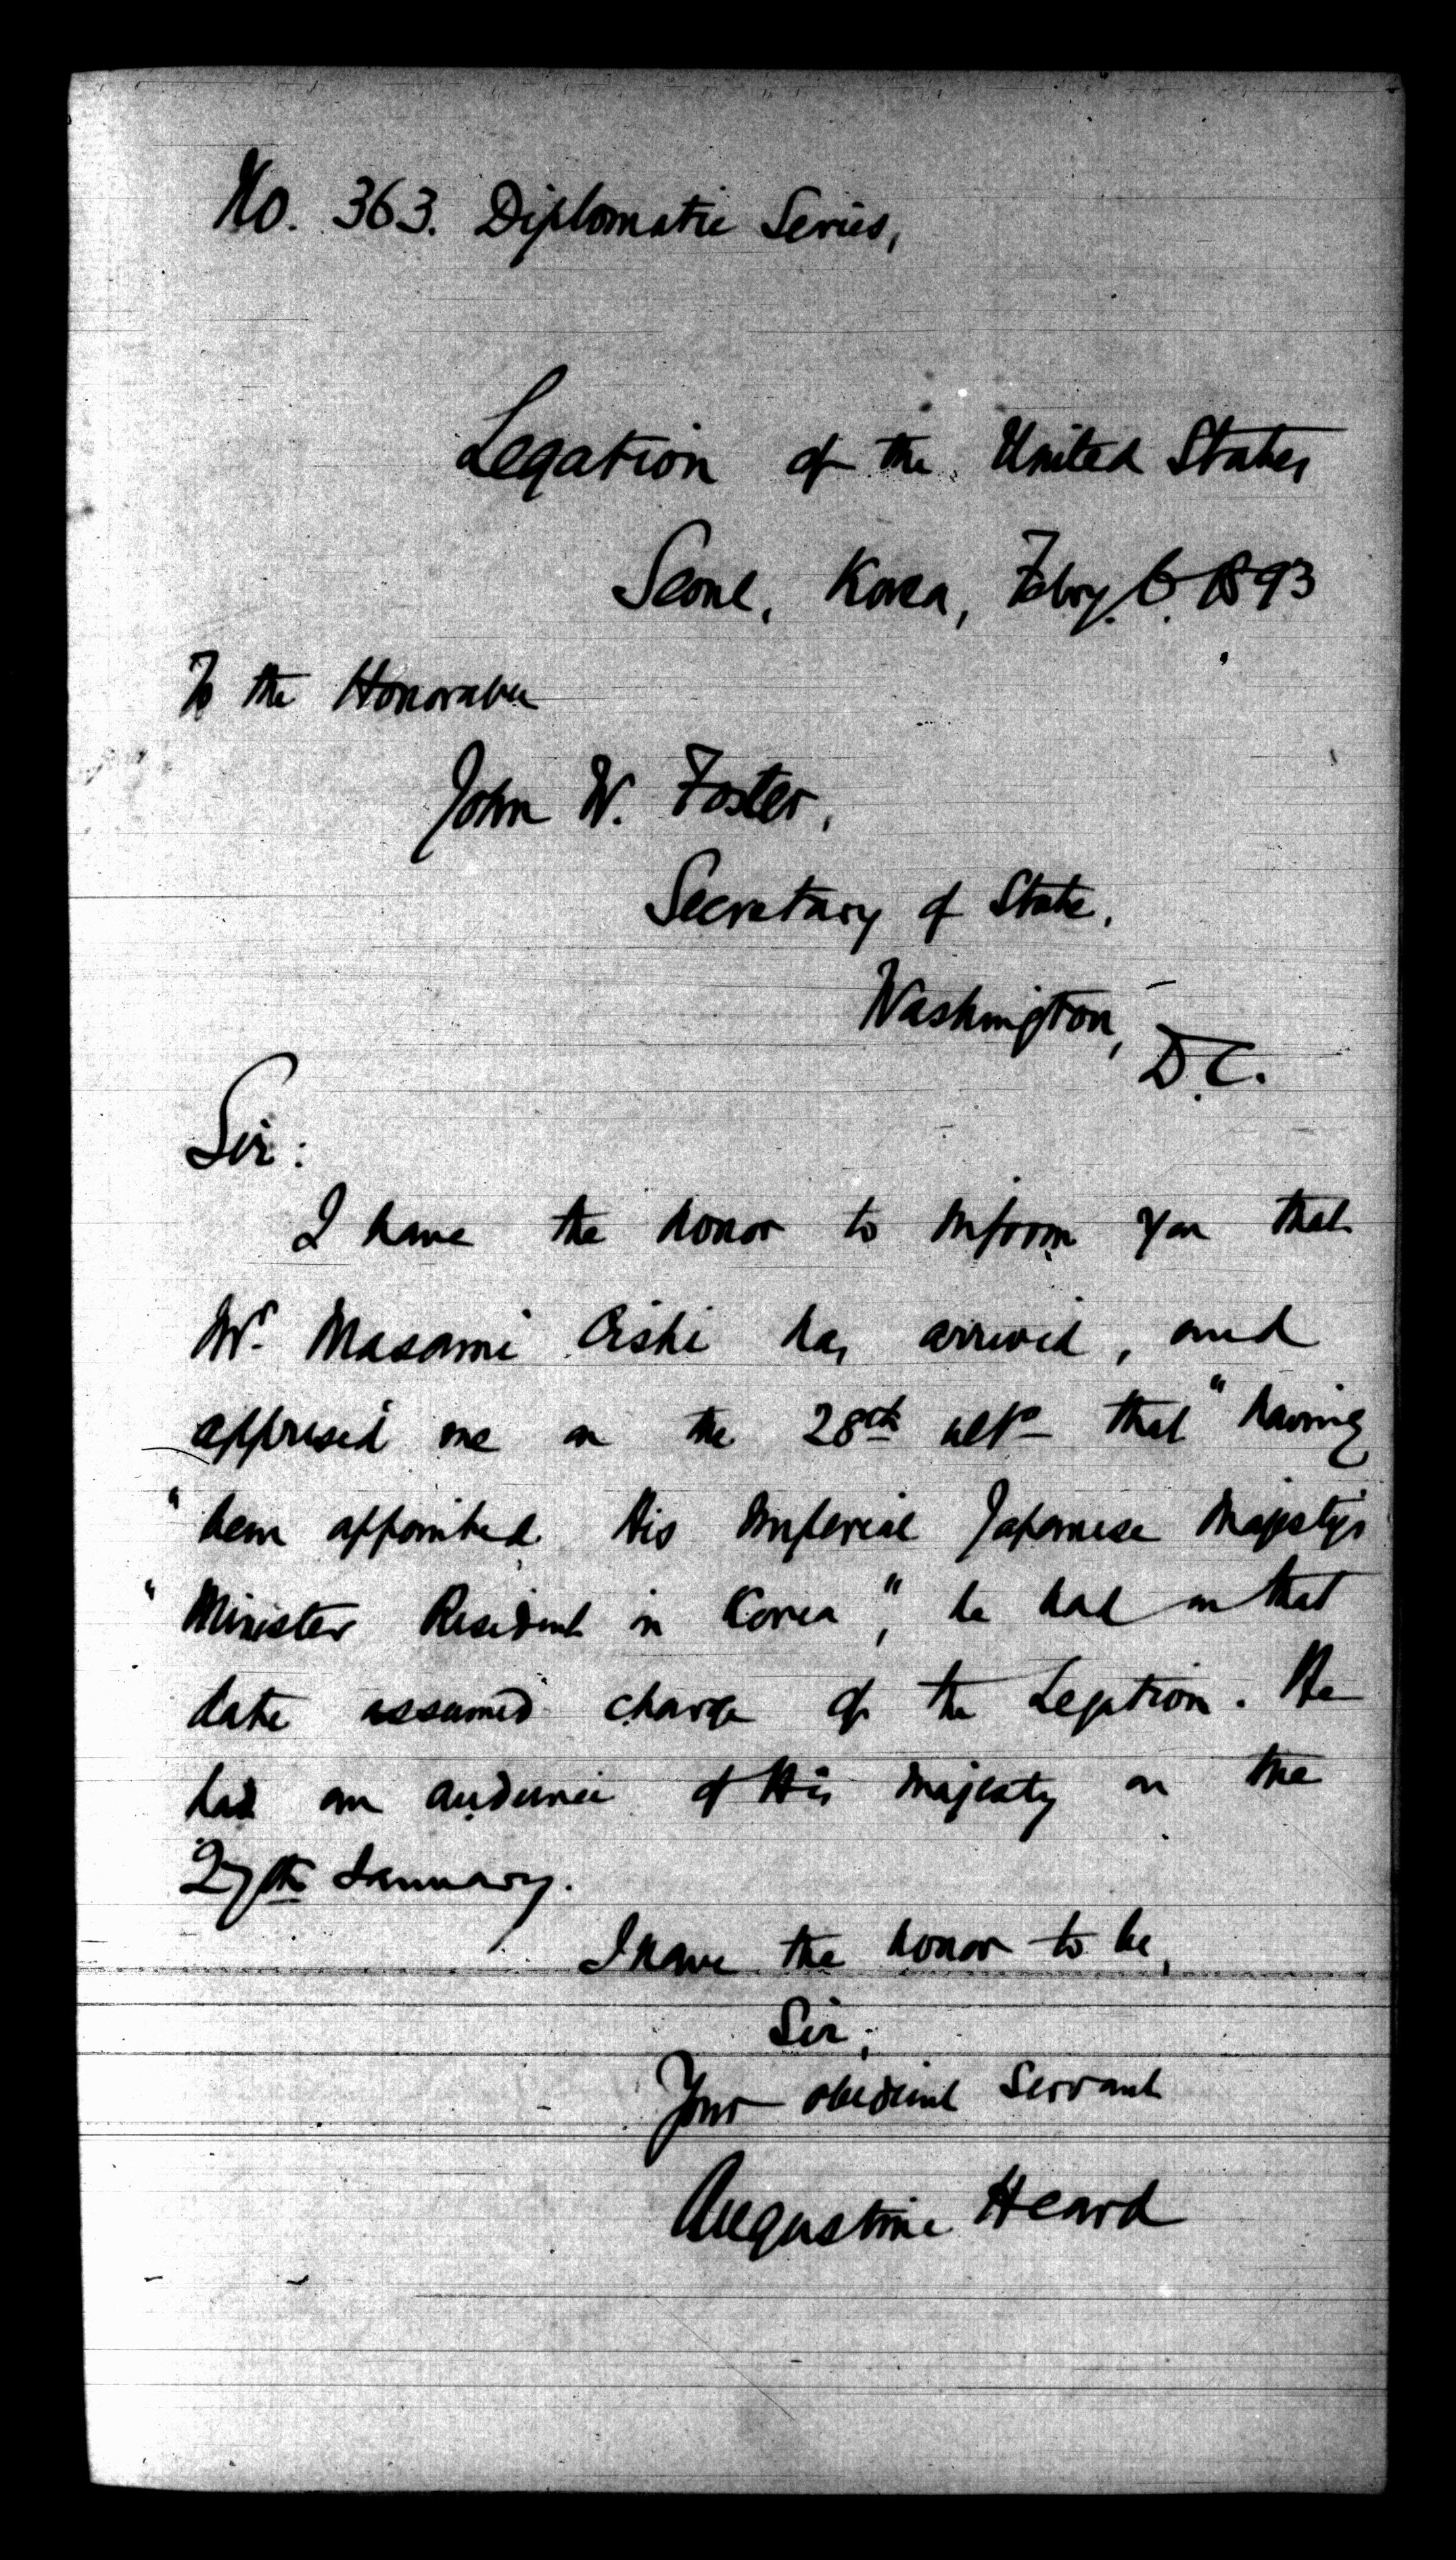 No. 363. Diplomatic Series,
Legation of the United States
Seoul, Korea, Febry. 6. 1893
To the Honorable
John W. Foster,
Secretary of State,
Washington,
D.C.
Sir:
I have the honor to inform you that
Mr. Masami Oishi has arrived, and
apprised me on the 28th ulto that "having
"been appointed His Imperial Japanese Majesty's
"Minister Resident in Korea", he had on that
date assumed charge of the Legation. He
had an audience of His Majesty on the
27th January.
I have the honor to be,
Sir,
Your obedient Servant
Augustine Heard